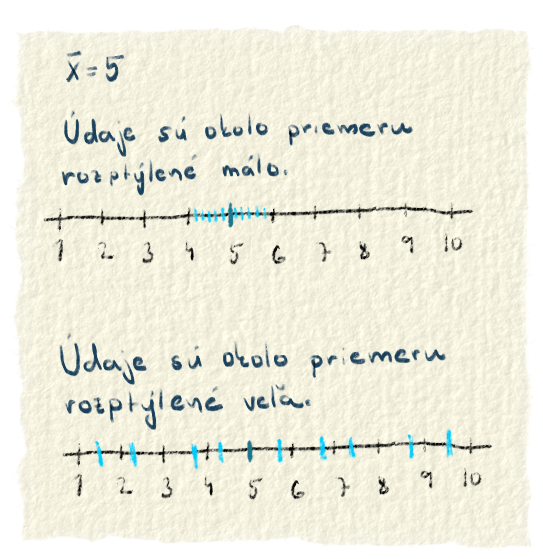 x̄ = 5
Údaje sú okolo priemeru
rozptýlené málo.
1 2 3 4 5 6 7 8 9 10
Údaje sú okolo priemeru
rozptýlené veľa.
1 2 3 4 5 6 7 8 9 10